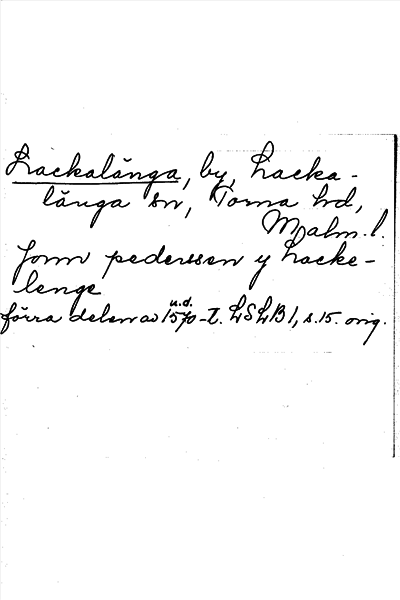 Lackalänga, by, Lacka-
länga sn, Torna hd,
Malm. l.
Jomn pederssen y Lacke-
lenge
u.d.
förra delen av 1570-t. LSLB 1, s. 15. orig.